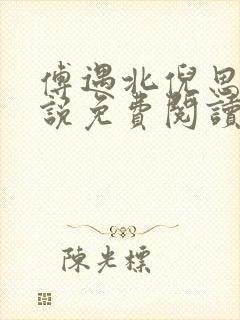 傅遇北倪思
說免費閱讀
陳光標